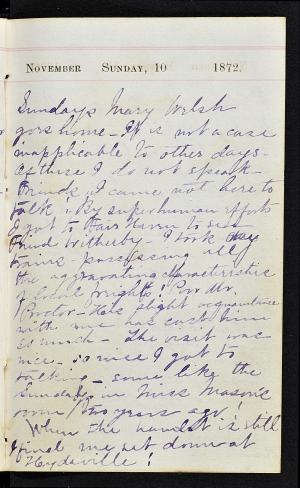 NOVEMBER SUNDAY, 10 1872.
Sundays Mary Welsh
goes home - It is not a case
inapplicable to other days -
Of these I do not speak -
Friends, I came not here to
talk! By superhuman efforts
I got to Fair Haven to see
Friend Witherby - I took
trains possessing all
the aggravating characteristics
of local freights! Poor Mr.
Proctor - His slight acquaintance
with me has cost him
so much - The visit was
nice - so nice I got to
talking - some like the
Sundays in Miss Mason's
room two years ago!
When the is still
find me set down at
Heydeville!